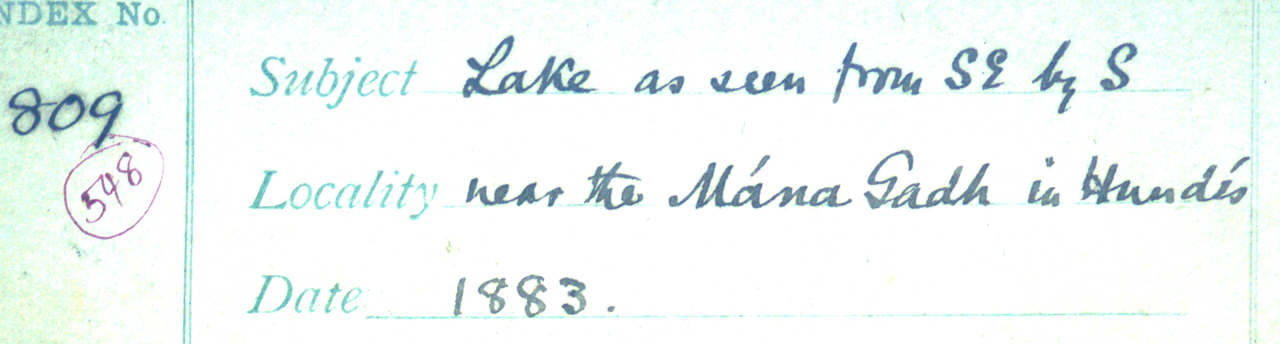 NDEX No.
809
548
Subject Lake as seen from SE by S
Locality near the Mána Gadh in Hundés
Date 1883.